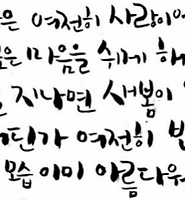 은 여전히 사랑이
은 마음을 쉬게 해
지나면 새봄이
딘가 여전히 빈
모습 이미 아름다워